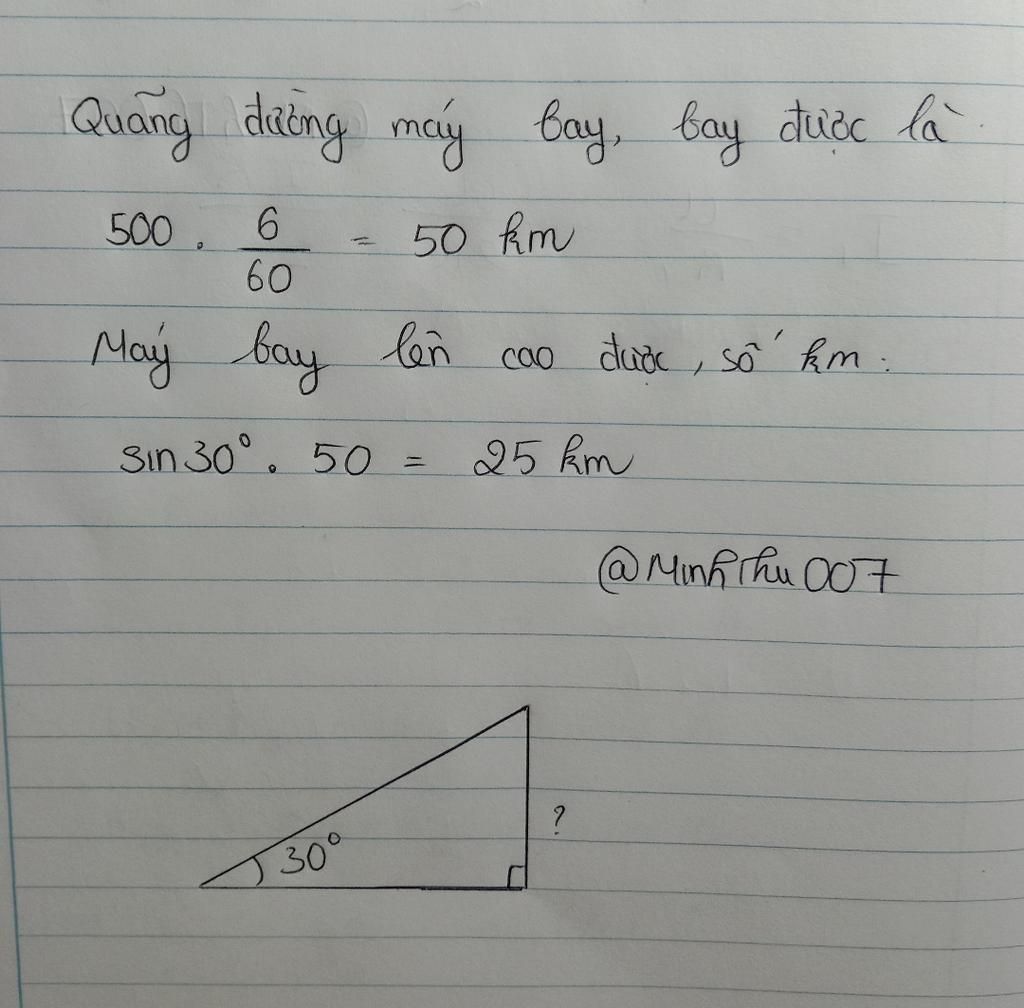 Quãng đường máy bay, bay được là
500 . 6/60 = 50 km
Máy bay lên cao được, số km :
sin 30° . 50 = 25 km
@MinhThu007
?
30°